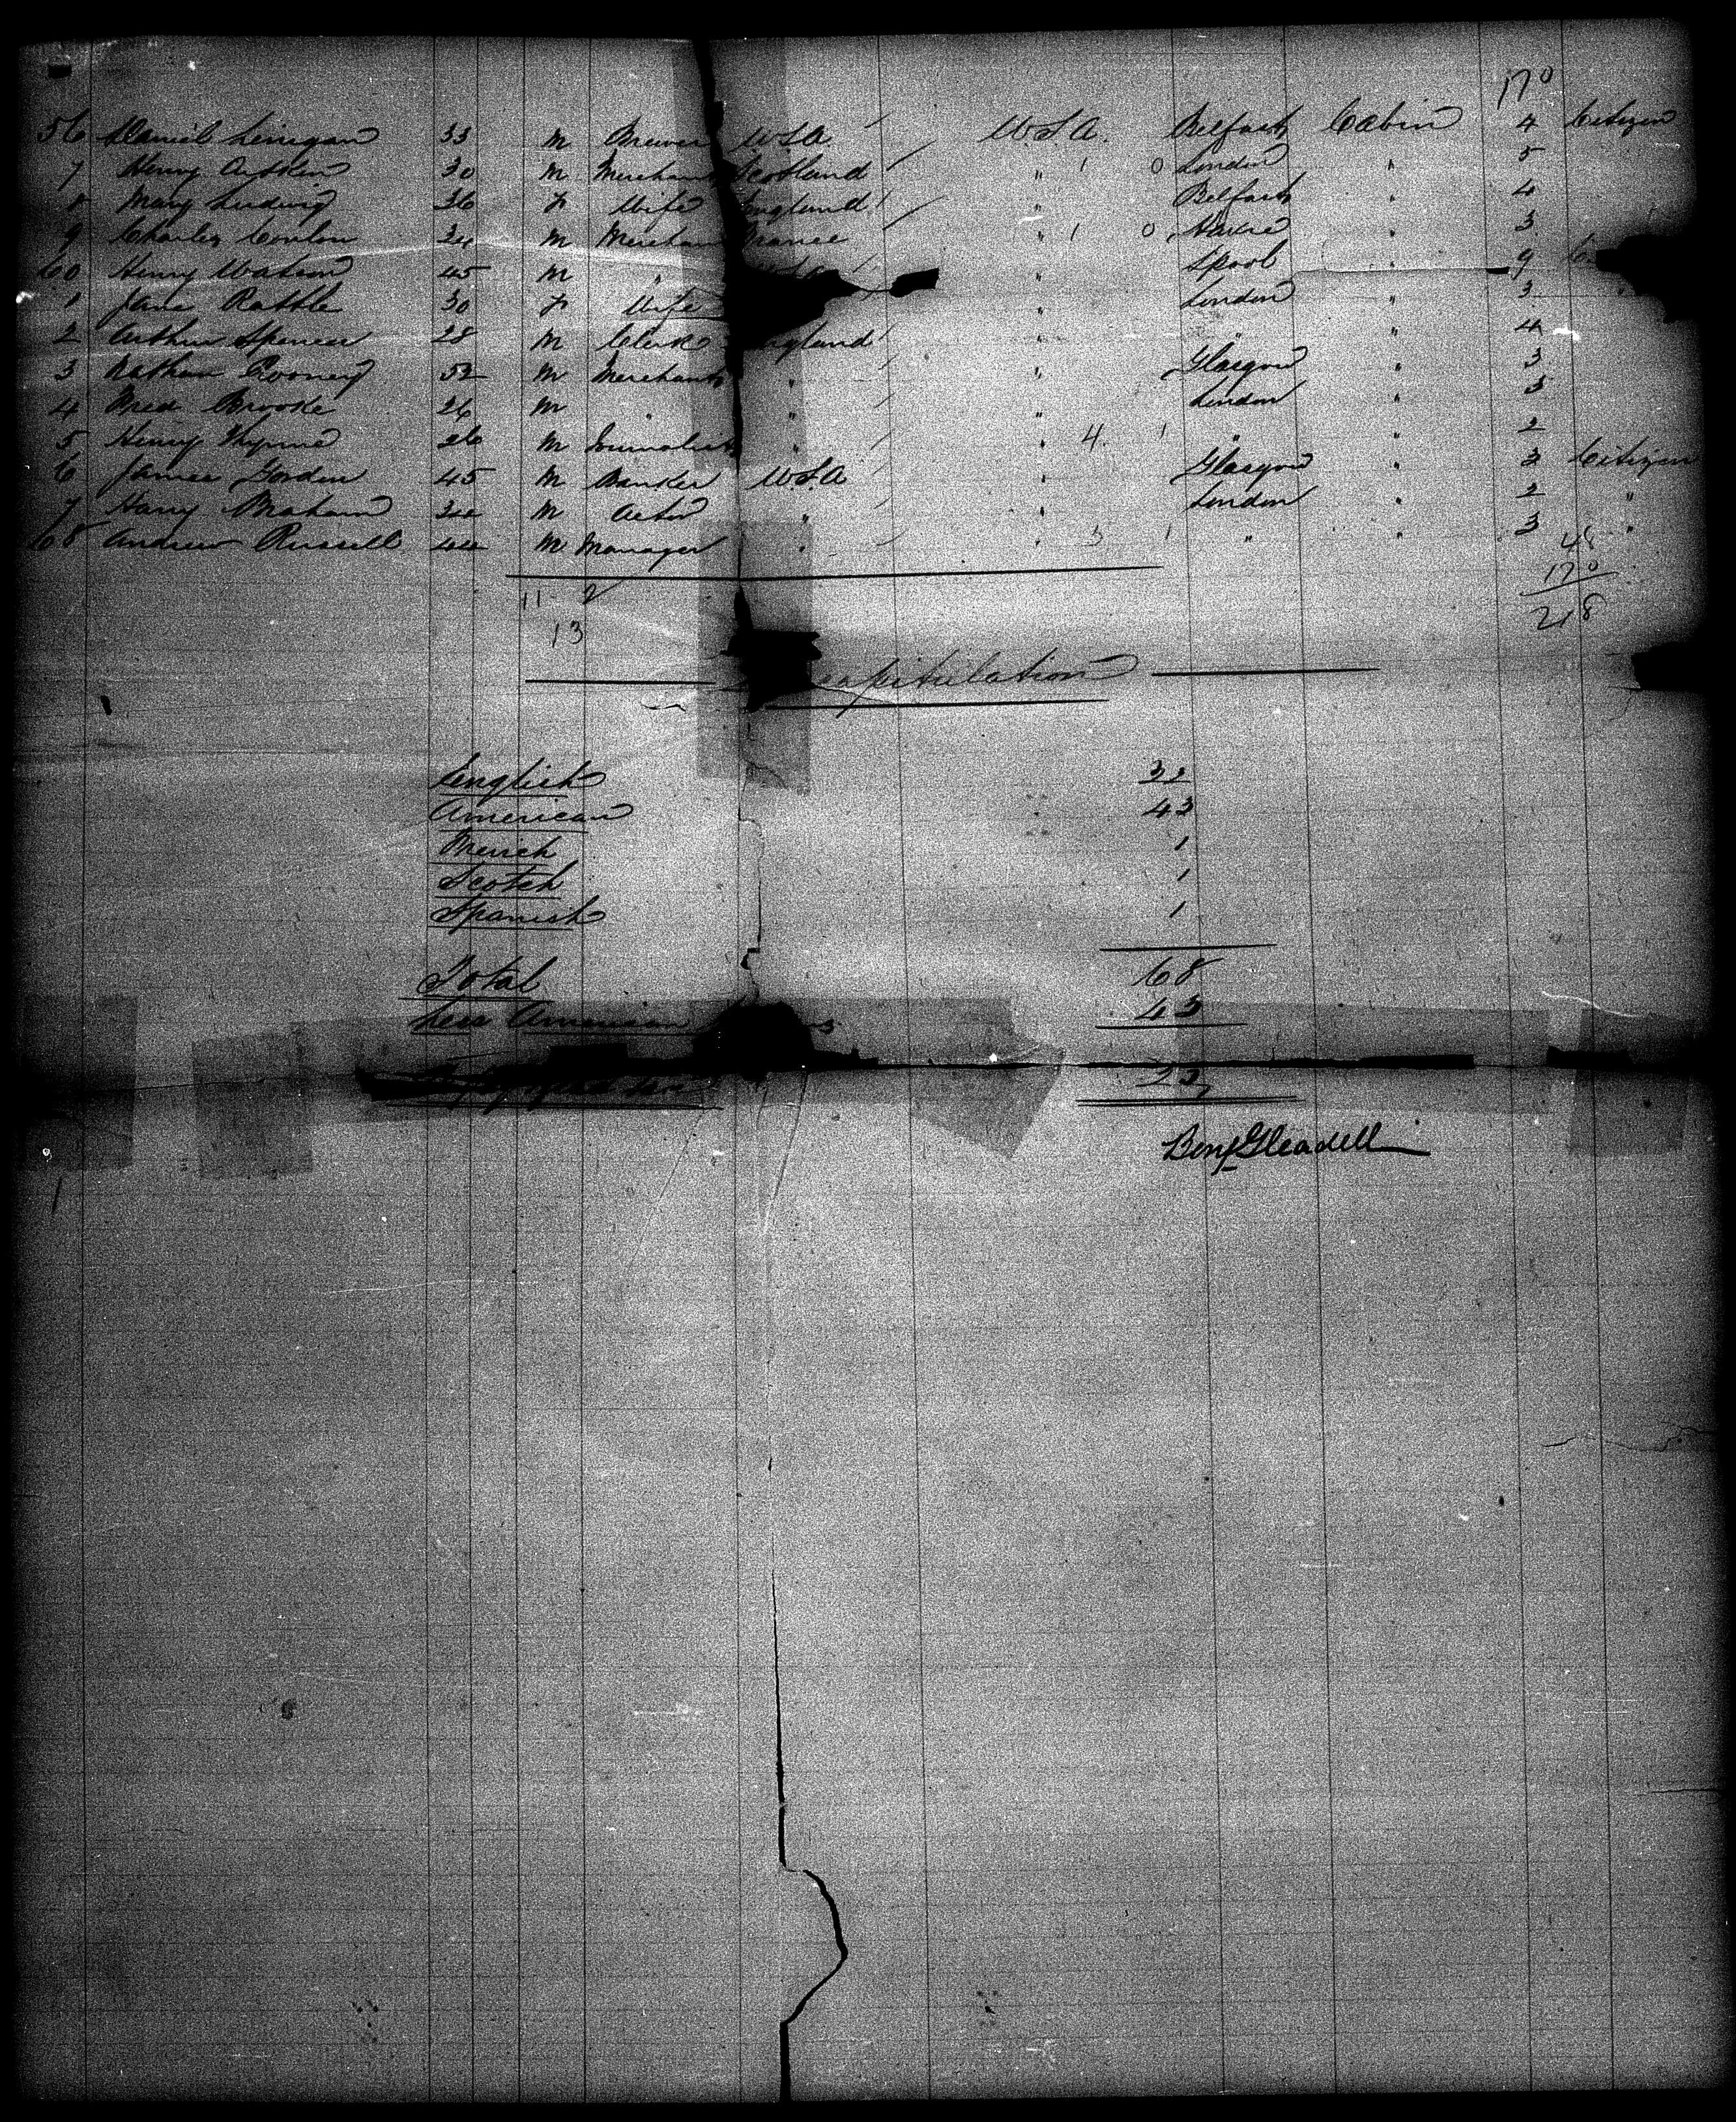 170
56 Daniel Linigan 33 M Brewer U.S.A. U.S.A. Belfast Cabin 4 Citizen
7 Henry Aitken 30 M Merchant Scotland " 1 0 London " 5
8 Mary Ludwig 36 F Wife England " Belfast " 4
9 Charles Conlon 34 M Merchant France " 1 0 Havre " 3
60 Henry Watson 45 M " " Lpool " 9
1 Jane Rattle 30 F Wife " London " 3 "
2 Arthur Spencer 28 M Clerk England " " " 4
3 Nathan Rooney 52 M Merchant " " Glasgow " 3
4 Fred Brooke 26 M " " " London " 3
5 Henry Thynne 26 M Journalist " " 4 1 " " 2
6 James Gordon 45 M Banker U.S.A " Glasgow " 3 Citizen
7 Harry Braham 34 M Actor " " London " 2 "
68 Andrew Russell 44 M Manager " " 3 1 " " 3 "
48
170
218
11 2
13
capitulation
English 32
American 43
French 1
Scotch 1
Spanish 1
Total 68
Less American 43
Benj Gleadell